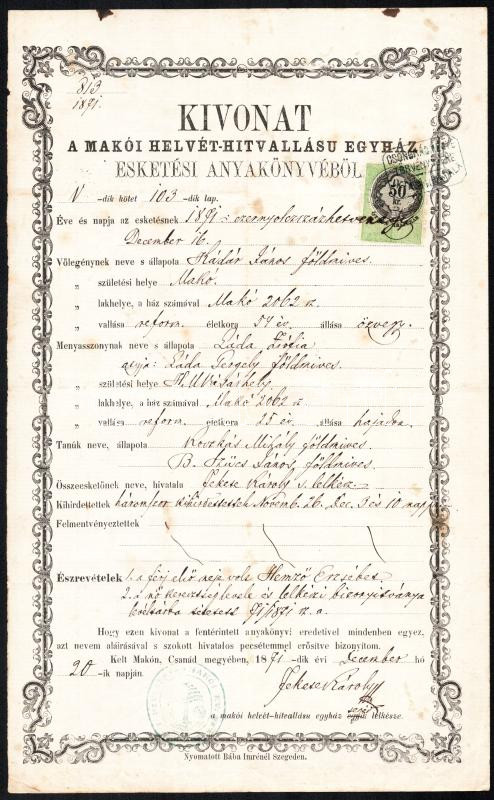 813
1891.
KIVONAT
A MAKÓI HELVÉT-HITVALLÁSU EGYHÁZ
ESKETÉSI ANYAKÖNYVÉBŐL.
V -dik kötet 103 -dik lap.
50
Éve és napja az esketésnek 1871 = ezernyolczszázhetvenegy
December 16.
Völegénynek neve s állapota Kádár János földmives.
„ születési helye Makó.
„ lakhelye, a ház számával Makó 2062 sz.
„ vallása reform. életkora 54 év. állása özvegy.
Menyasszonynak neve s állapota Láda Zsófia
atyja: Láda Gergely földmives.
„ születési helye H.M.Vásárhely.
„ lakhelye, a ház számával Makó 2062 sz
„ vallása reform. életkora 25 év. állása hajadon
Tanúk neve, állapota Mihály földmives.
B. Szűcs János, földmives.
Összeesketőnek neve, hivatala Fekete Károly s. lelkész.
Kihirdettettek háromszor kihirdettettek Novemb. 26. Dec. 3 és 10 napj.
Felmentvényeztettek
Észrevételek 1. a férj első neje volt Hemző Erzsébet
2. a nő keresztséglevele és lelkészi bizonyitványa
levéltárba tétetett 99/1871 sz. a.
Hogy ezen kivonat a fentérintett anyakönyvi eredetivel mindenben egyez,
azt nevem aláirásával s szokott hivatalos pecsétemmel erősitve bizonyitom.
Kelt Makón, Csanád megyében, 1871 -dik évi December hó
20 -ik napján.
Fekete Károly
a makói helvét-hitvallásu egyház segéd lelkésze.
Nyomatott Bába Imrénél Szegeden.